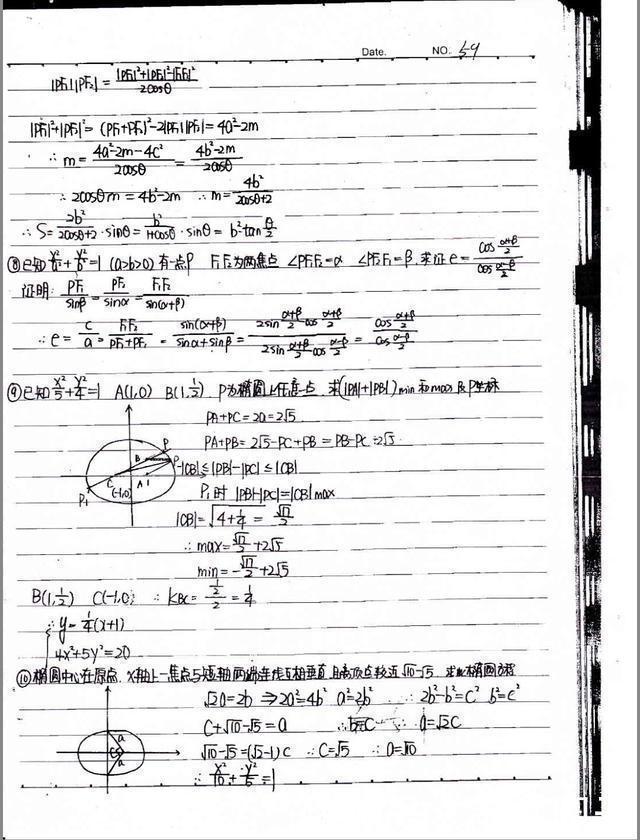 Date. NO. 59
|PF₁||PF₂| = (|PF₁|²+|PF₂|²-|F₁F₂|²)/(2cosθ)
|PF₁|²+|PF₂|² = (PF₁+PF₂)²-2|PF₁||PF₂| = 4a²-2m
∴ m = (4a²-2m-4c²)/(2cosθ) = (4b²-2m)/(2cosθ)
∴ 2cosθm = 4b²-2m ∴ m = 4b²/(2cosθ+2)
∴ S = 2b²/(2cosθ+2)·sinθ = b²/(1+cosθ)·sinθ = b²tan(θ/2)
⑧已知 x²/a²+y²/b²=1 (a>b>0) 有一点P F₁F₂为两焦点 ∠PF₁F₂=α ∠PF₂F₁=β, 求证 e = cos((α+β)/2)/cos((α-β)/2)
证明: PF₁/sinβ = PF₂/sinα = F₁F₂/sin(α+β)
∴ e = c/a = F₁F₂/(PF₂+PF₁) = sin(α+β)/(sinα+sinβ) = (2sin((α+β)/2)cos((α+β)/2))/(2sin((α+β)/2)cos((α-β)/2)) = cos((α+β)/2)/cos((α-β)/2)
⑨已知 x²/5+y²/4=1 A(1,0) B(1,1/2) P为椭圆上任意一点, 求(|PA|+|PB|)min和max及P坐标
PA+PC=2a=2√5
PA+PB = 2√5-PC+PB = PB-PC+2√5
P B P C A 1 (-1,0) P₁
-|CB| ≤ |PB|-|PC| ≤ |CB|
P₁时 |PB|-|PC|=|CB|max
|CB| = √(4+1/4) = √17/2
∴ max = √17/2+2√5
min = -√17/2+2√5
B(1,1/2) C(-1,0) ∴ KBC = (1/2)/2 = 1/4
∴ { y = 1/4(x+1)
4x²+5y²=20
⑩椭圆中心在原点, x轴上一焦点与短轴两端连线互相垂直, 且与顶点较近√10-√5, 求椭圆方程
√2a=2b ⇒ 2a²=4b² a²=2b² ∴ 2b²-b²=c² b²=c²
c+√10-√5=a ∴ b=c ∴ a=√2c
a c a
√10-√5=(√2-1)c ∴ c=√5 ∴ a=√10
∴ x²/10+y²/5=1